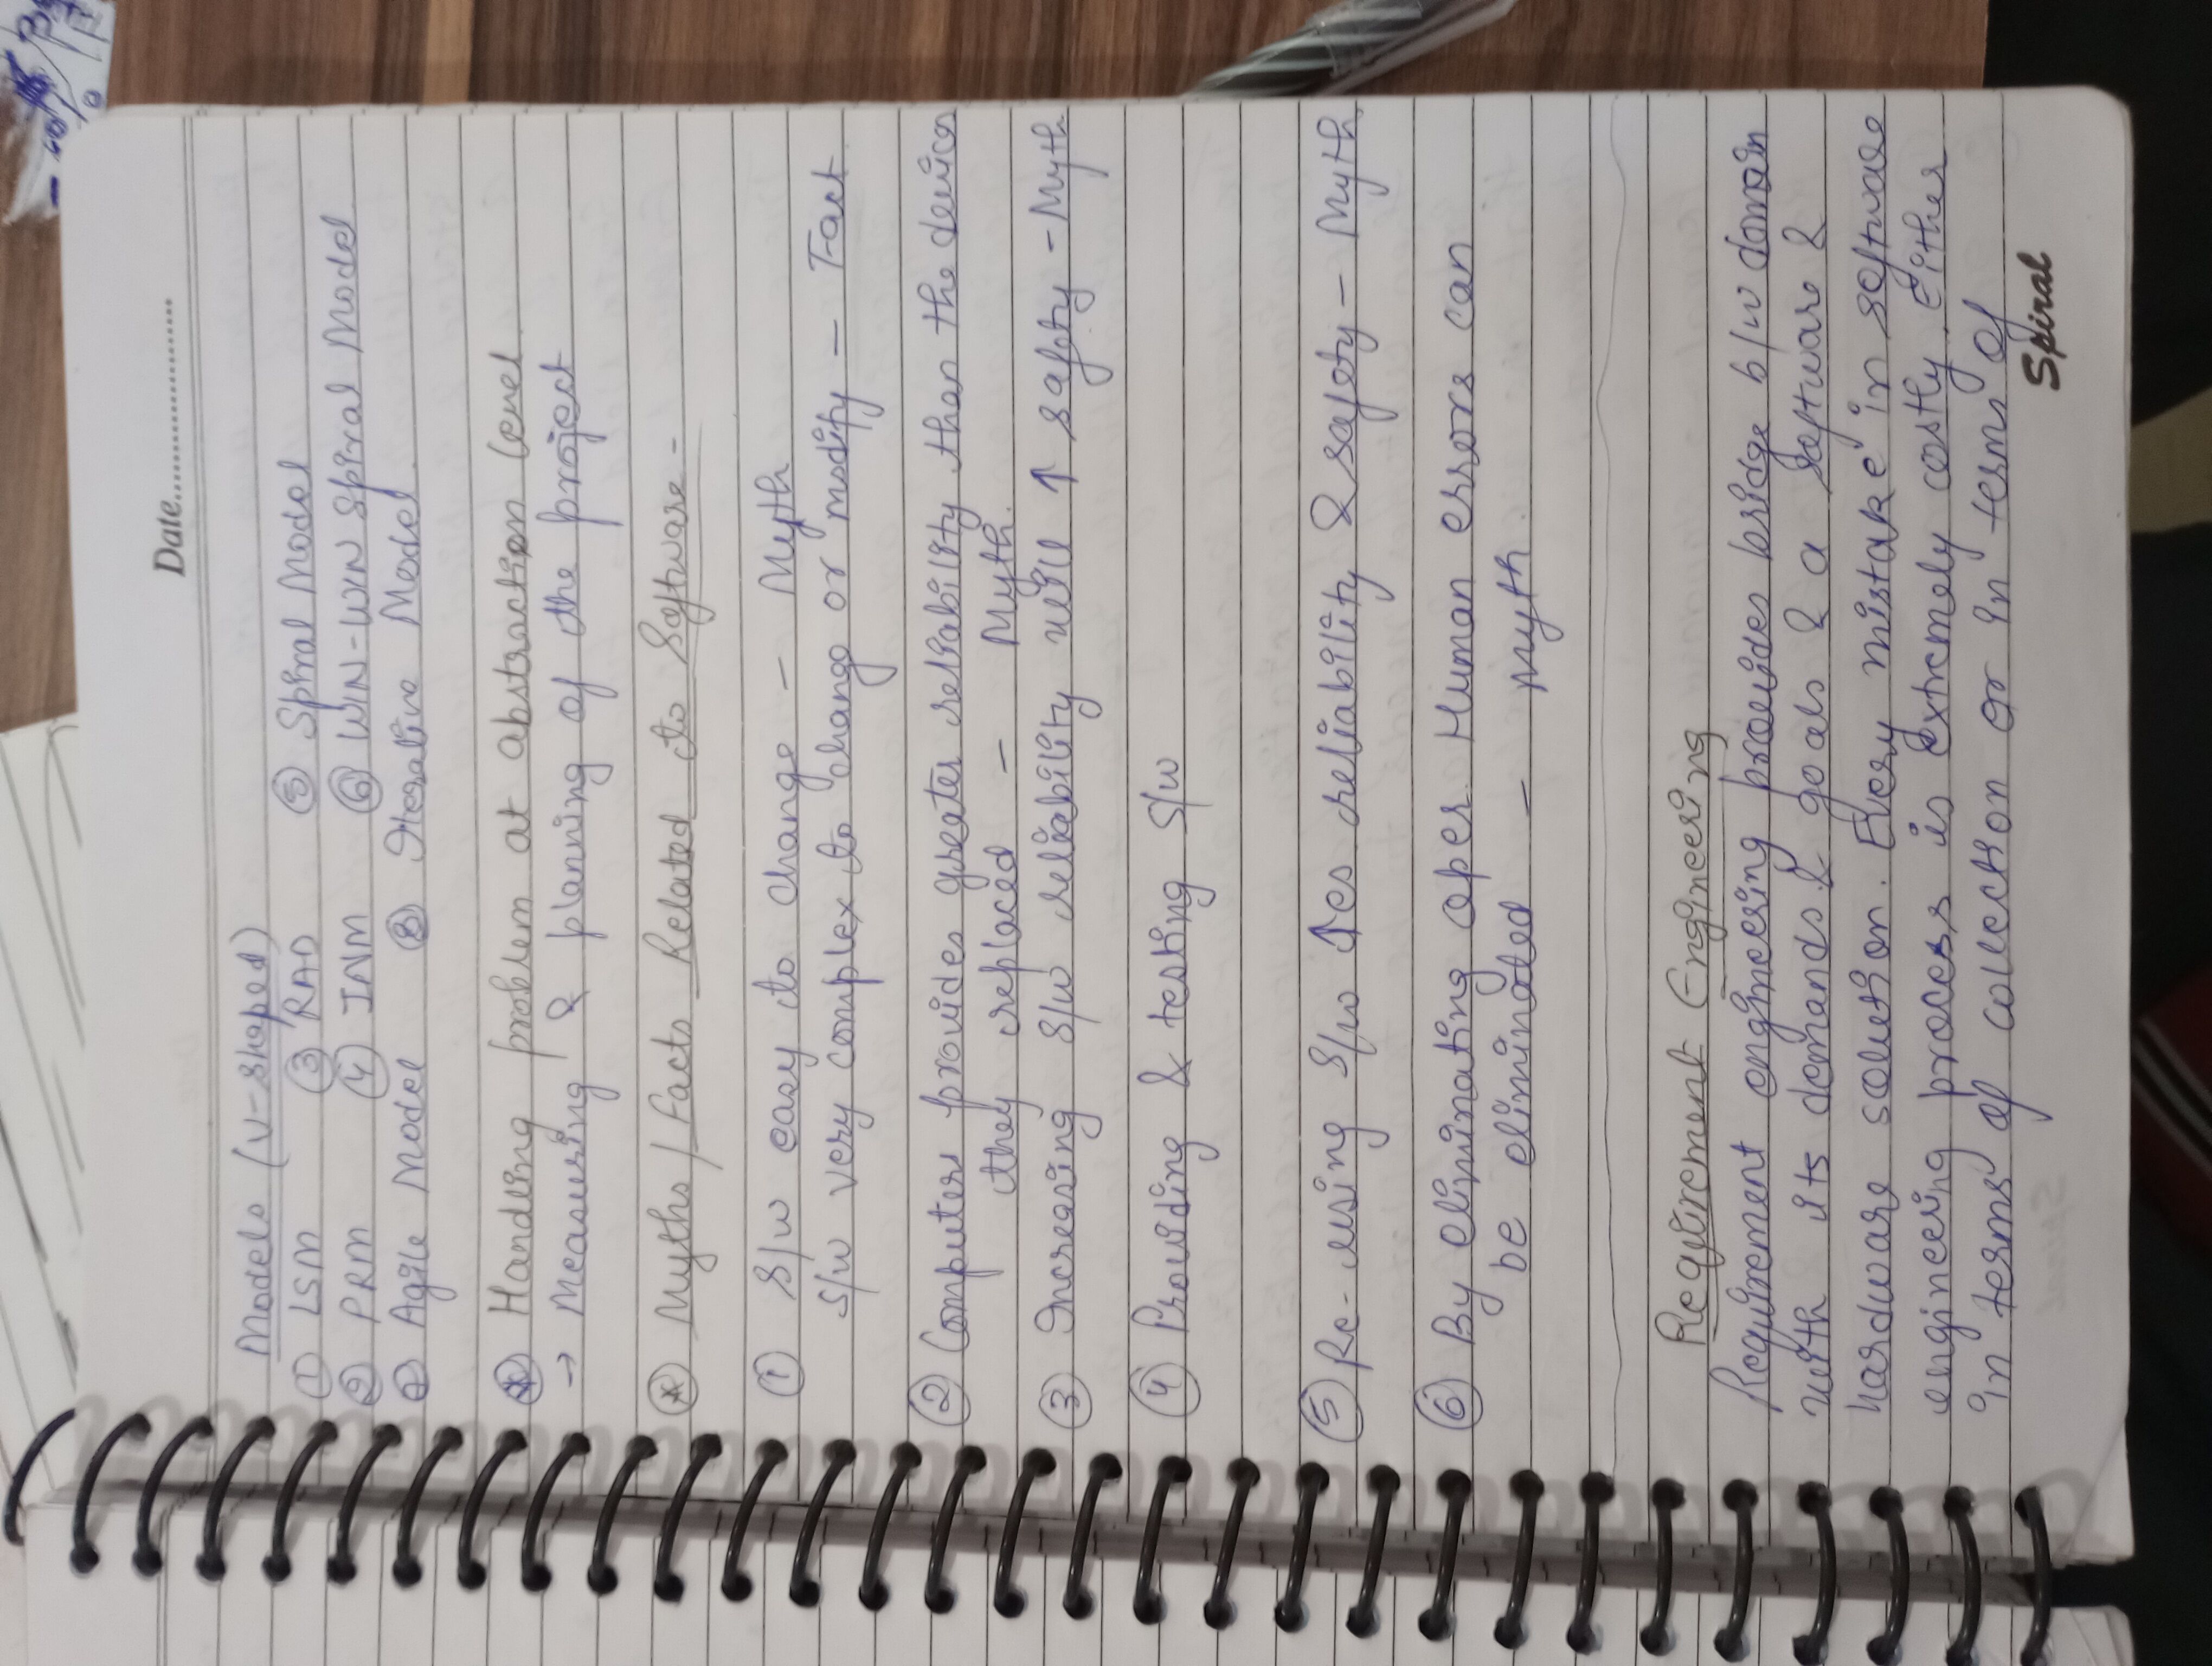 Date..............................
Models (V-shaped)
① LSM ③ RAD ⑤ Spiral Model
② PRM ④ INM ⑥ WIN-WIN Spiral Model
Agile Model ⑧ Iterative Model.
Handling problem at abstraction level
→ Measuring & planning of the project
Myths/Facts Related to Software-
① S/w easy to change - Myth
S/w very complex to change or modify - Fact
② Computers provides greater reliability than the devices
they replaced - Myth.
③ Increasing S/w reliability will ↑ safety - Myth
④ Providing & testing S/w
⑤ Re-using S/w ↑es reliability & safety - Myth
⑥ By eliminating oper. Human errors can
be eliminated - Myth.
Requirement Engineering
Requirement engineering provides bridge b/w domain
with its demands & goals & a software &
hardware solution. Every mistake in software
engineering process is extremely costly either
in terms of collection or in terms of
Spiral